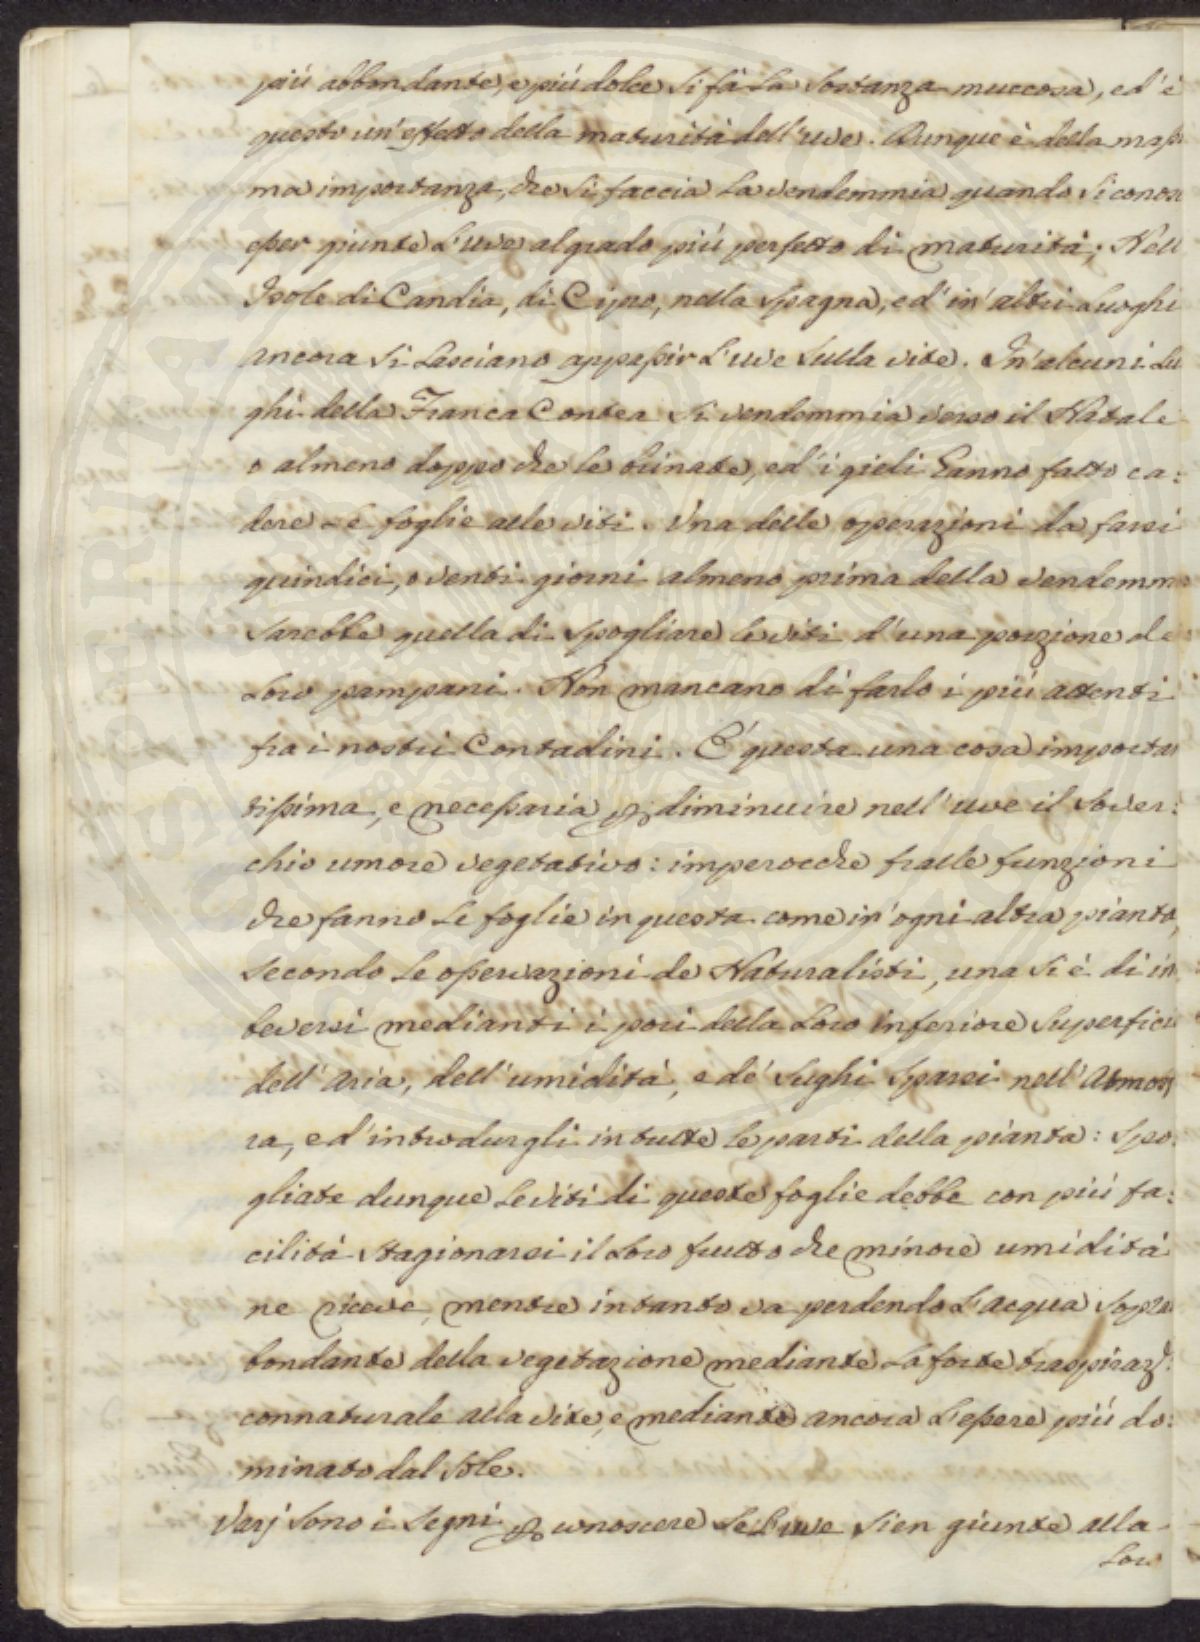 più abbondante, e più dolce si fà la sostanza muccosa, ed'è
questo un'effetto della maturità dell'uve. Dunque è della mass
ma importanza, che si faccia la vendemmia quando si conos
esser giunte l'uve al grado più perfetto di maturità; Nell
Isole di Candia, di Cipro, nella Spagna, ed'in'altri Luoghi
ancora si lasciano appassir l'uve sulla vite. In'alcuni Lu
ghi della Franca Contea si vendemmia verso il Natale
o almeno doppo che le brinate, ed'i gieli hanno fatto ca:
dere le foglie alle viti. Una delle operazioni da farsi
quindici, o venti giorni almeno prima della vendemm
sarebbe quella di spogliare le viti d'una porzione de
Loro pampani. Non mancano di farlo i più attenti
fra i nostri Contadini. E' questa una cosa importan
tissima, e necessaria per diminuire nell'uve il sover:
chio umore vegetativo: imperocche fralle funzioni
che fanno le foglie in questa come in'ogni altra pianta,
secondo le osservazioni de Naturalisti, una si è di im
beversi medianti i pori della Loro inferiore superfici
dell'aria, dell'umidità, e de' sughi sparsi nell'Atmosf
ra, ed'introdurgli in tutte le parti della pianta: Spo:
gliate dunque le viti di queste foglie debbe con più fa:
cilità stagionarsi il Loro frutto che minore umidità
ne riceve, mentre intanto va perdendo l'acqua sopra
bondante della vegetazione mediante la forte traspiraz.e:
connaturale alla vite, e mediante ancora l'essere più do:
minato dal sole.
Varj sono i segni per conoscere se l'uve sien giunte alla
Loro